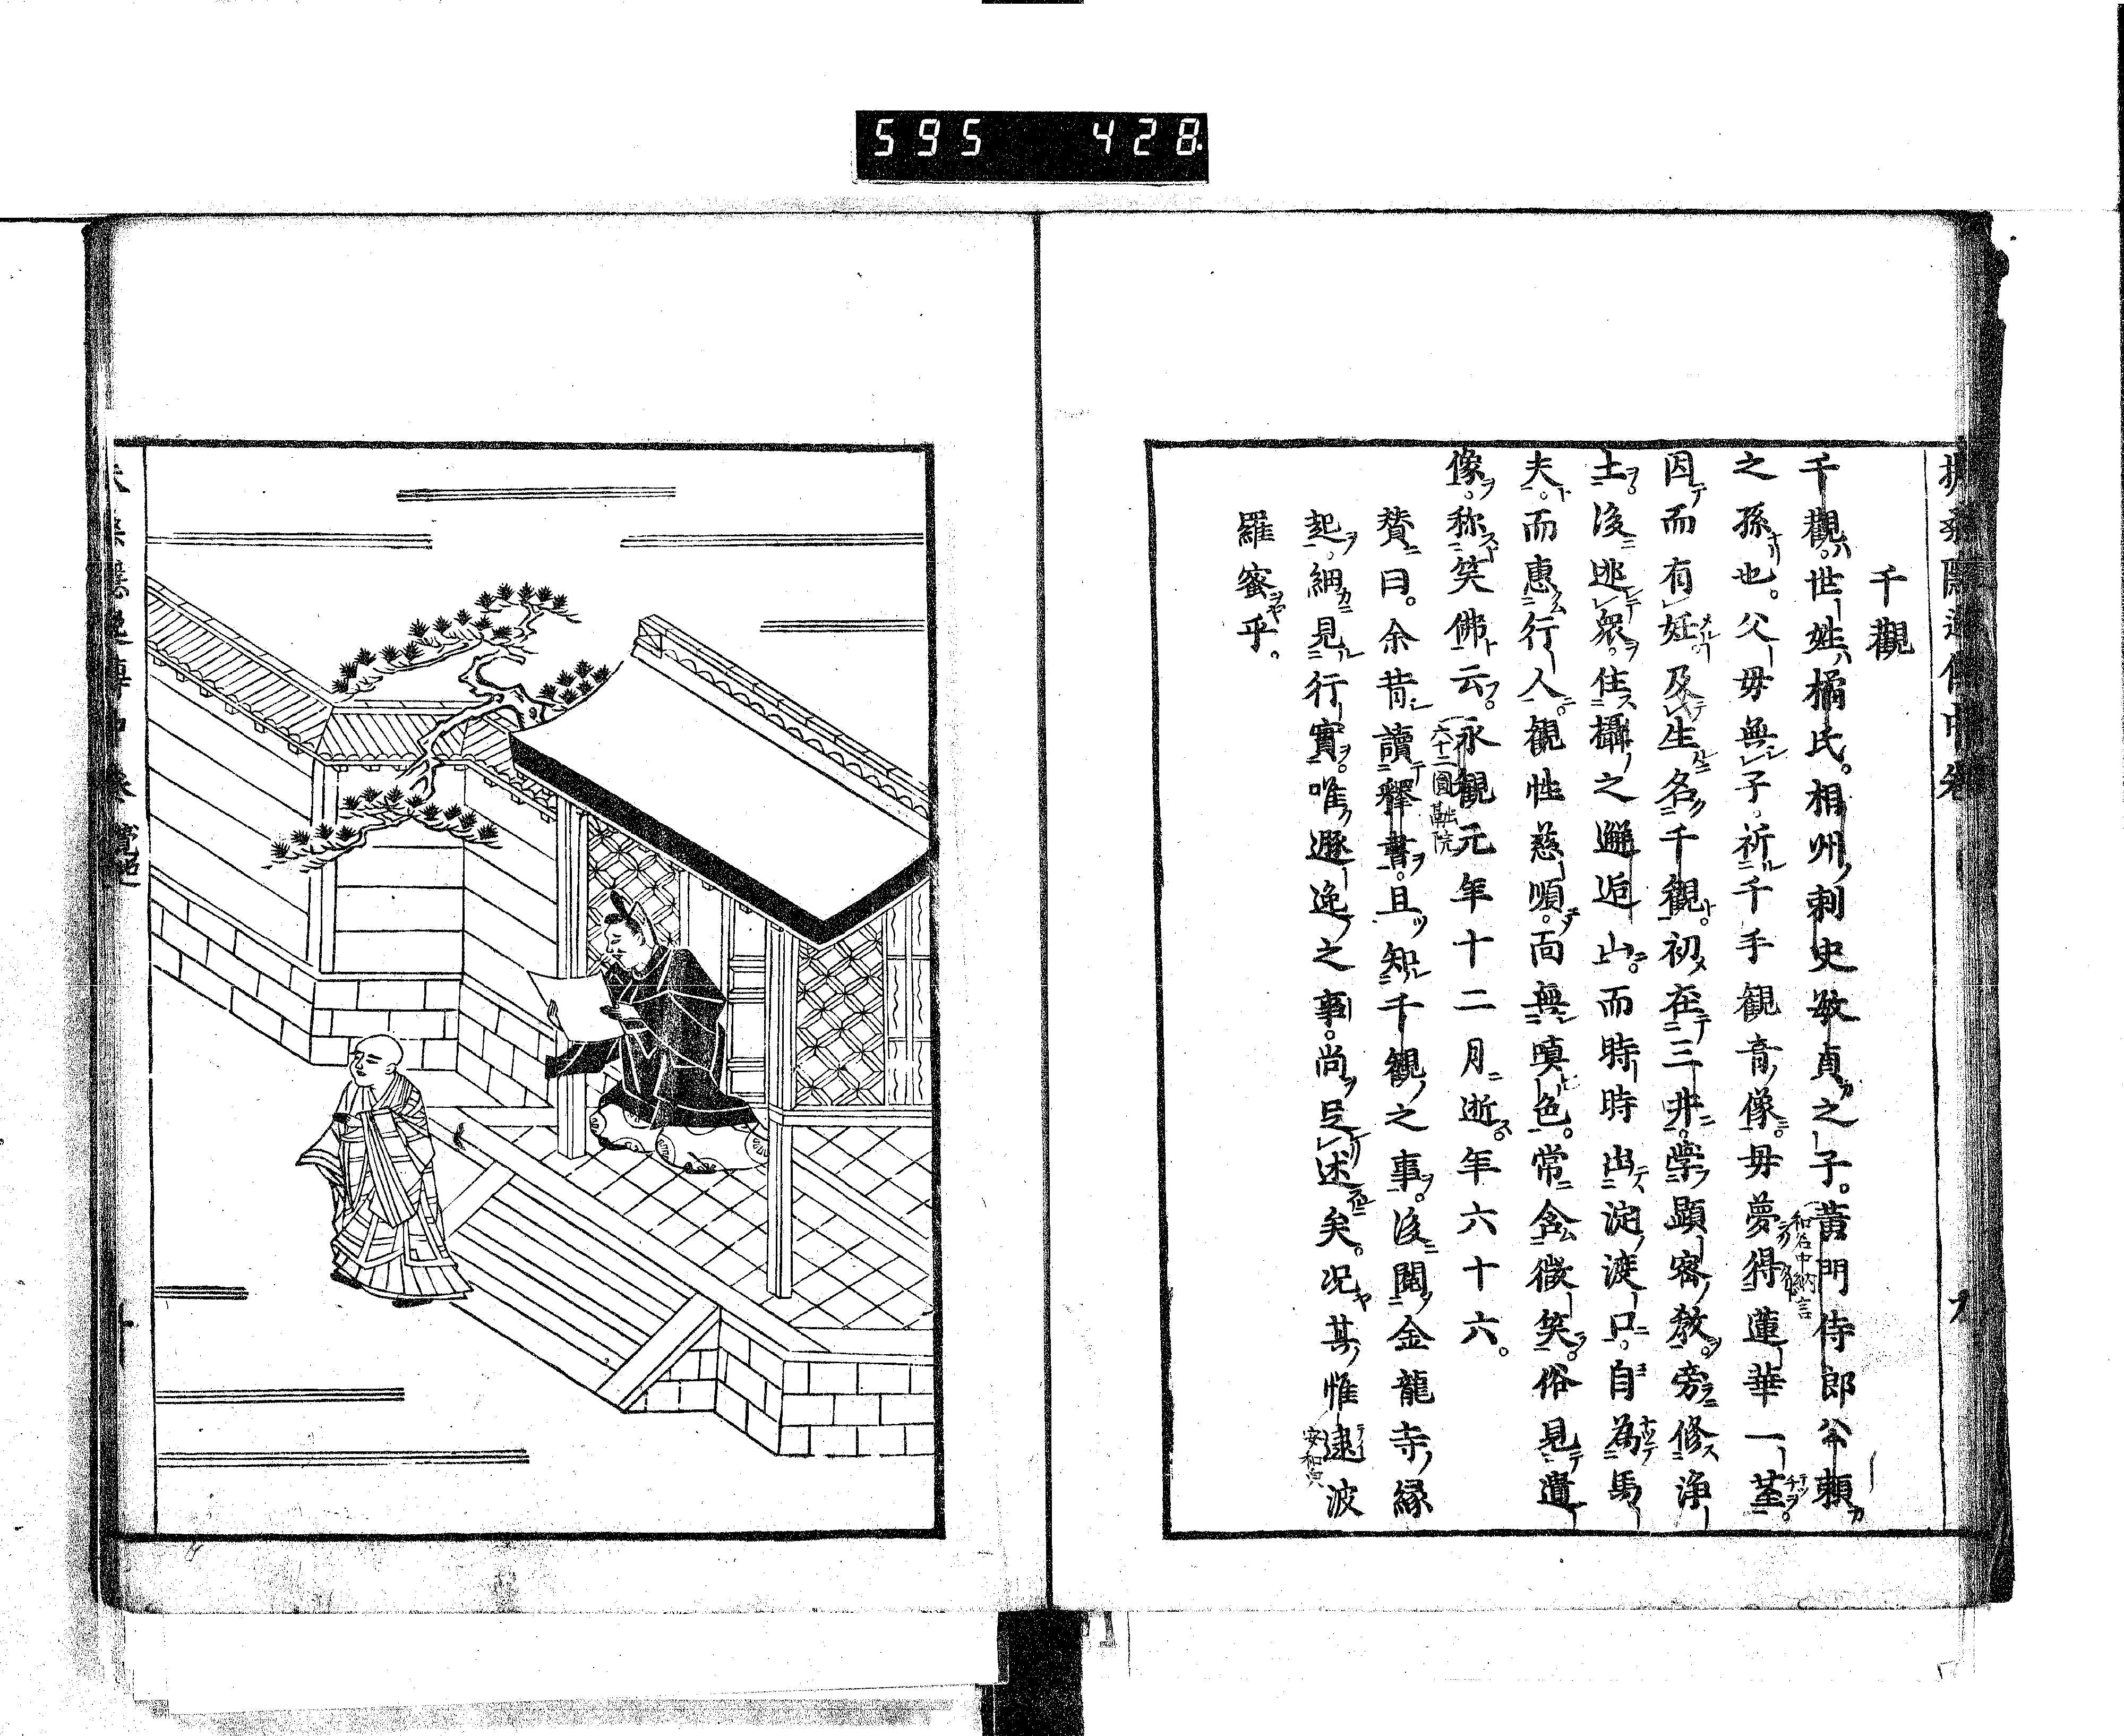 595 428
千觀
千觀。世姓橘氏。相州刺史敏貞之子。黃門侍郎公頼
和名中納言
之孫也。父母無子。祈千手觀音像。母夢得蓮華一莖。
因而有妊。及生名千觀。初在三井。學顕密教。旁修淨
土。後逃衆。住攝之邂逅山。而時時出淀渡口。自為馬
夫。而惠行人。觀性慈順。面無嗔色。常含微笑。俗見遺
像。称笑佛云。永觀元年十二月逝。年六十六。
六十二圓融院
賛曰。余昔讀釋書。且知千觀之事。後閱金龍寺縁
起。細見行實。唯遯逸之事。尚足述矣。況其惟逮波
羅蜜乎。